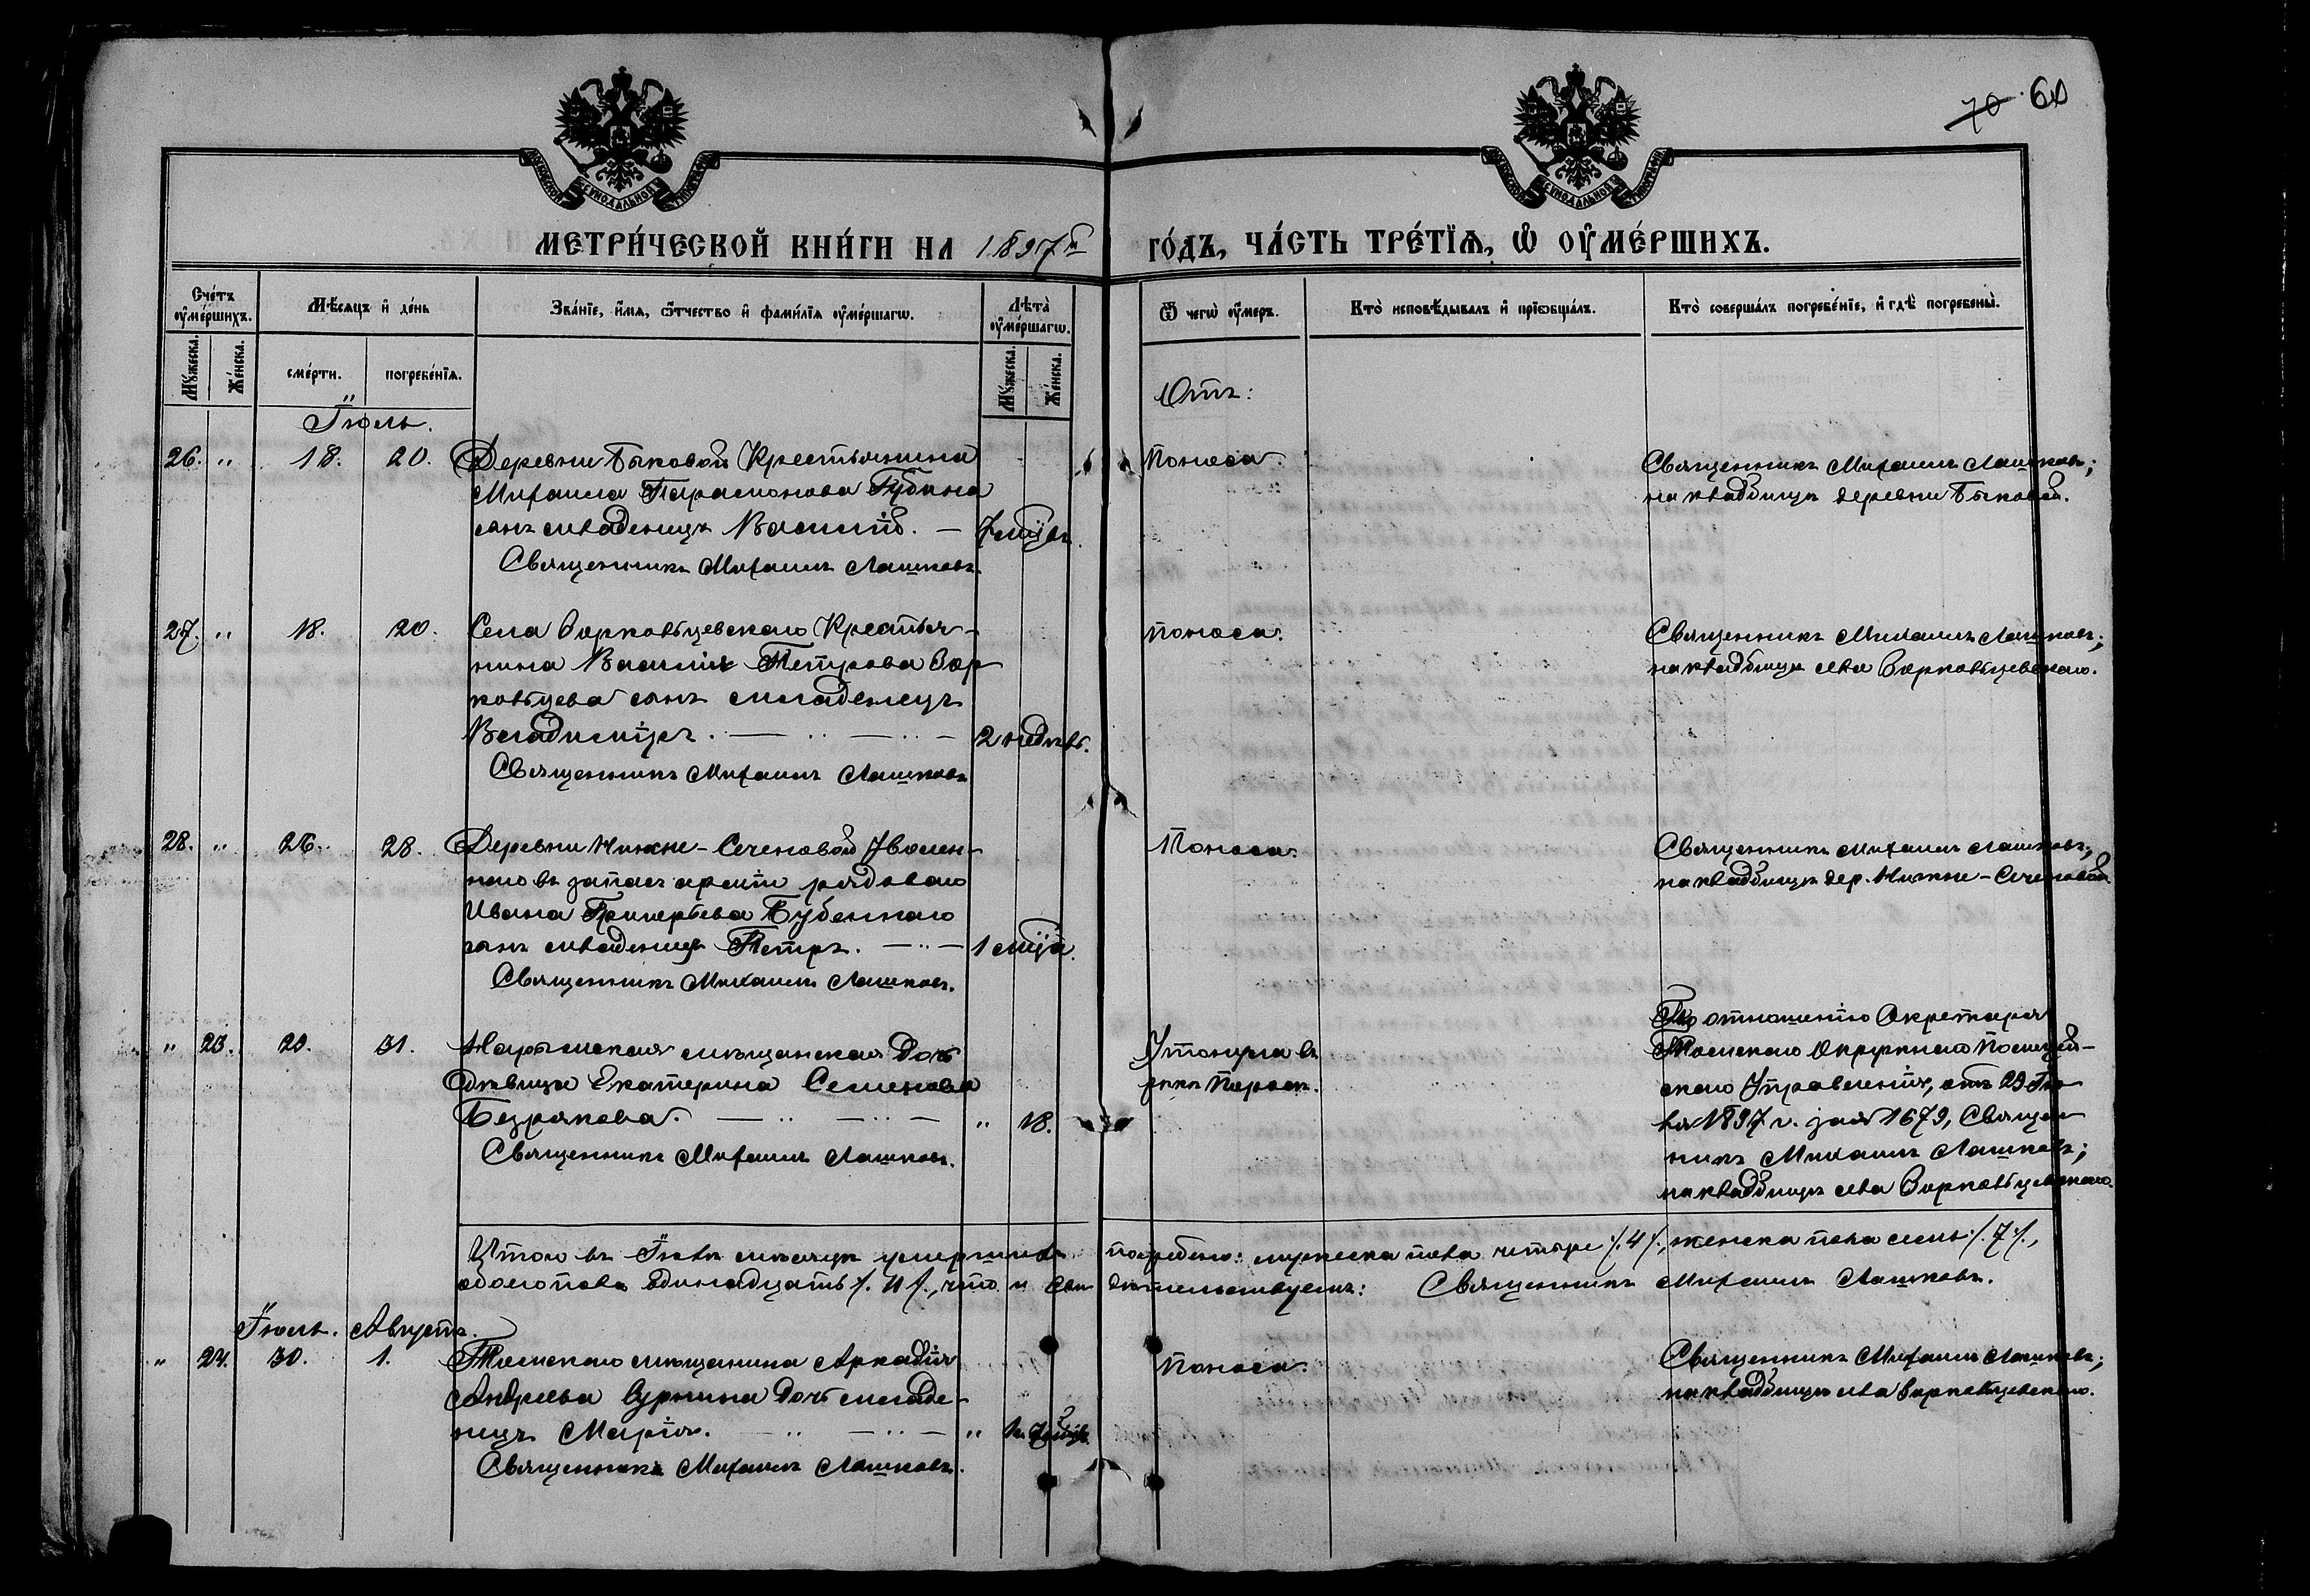 70 60
МЕТРИ́ЧЕСКОЙ КНИ́ГИ НА 1897й ГО́ДЪ, ЧА́СТЬ ТРЕ́ТЇѦ, Ѡ ОУМЕ́РШИХЪ.
Сче́тъ оумершихъ.
Мѣ́сяцъ и де́нь
Зва́нїе, и́мя, о́тчество и фами́лїя оуме́ршагѡ.
Лѣта̀ оуме́ршагѡ.
Ѿ чегѡ̀ оу́меръ.
Кто̀ исповѣ́дывалъ и прїѡбща́лъ.
Кто̀ соверша́лъ погребе́нїе, и гдѣ̀ погребены̀.
Му́жеска.
Же́нска.
сме́рти.
погребе́нїя.
Му́жеска.
Же́нска.
Іюль.
Отъ:
26. " 18. 20. Деревни Быковой Крестьянина
Михаила Парамонова Губина
сынъ младенецъ Василій. — 7 мѣ́цъ.
Священникъ Михаилъ Лашковъ.
Поноса.
Священникъ Михаилъ Лашковъ;
на кладбищѣ деревни Быковой.
27. " 18. 20. Села Зоркальцевскаго Крестья-
нина Василія Петрова Зор
кальцева сынъ младенецъ
Владиміръ. 2 недѣль.
Священникъ Михаилъ Лашковъ
поноса.
Священникъ Михаилъ Лашковъ;
на кладбищѣ села Зоркальцевскаго.
28. " 26. 28. Деревни Нижне-Сеченовой Уволен-
наго въ запасъ арміи рядоваго
Ивана Григорьева Бубеннаго
сынъ младенецъ Петръ. 1 мц̃а.
Священникъ Михаилъ Лашковъ.
Поноса.
Священникъ Михаилъ Лашковъ;
на кладбищѣ дер. Нижне-Сеченовой
" 23. 29. 31. Нарымская мѣщанская дочь
дѣвица Екатерина Семенова
Безрякова. " 18.
Священникъ Михаилъ Лашковъ.
Утонула въ
рѣкѣ Поросѣ.
По отношенію Секретаря
Томскаго Окружнаго Полицей-
скаго Управленія, отъ 29 Ію
ля 1897 г. за № 1679, Священ
никъ Михаилъ Лашковъ;
на кладбищѣ села Зоркальцевскаго.
Итого въ Іюлѣ мѣсяцѣ умершихъ погребено: мужеска пола четыре /. 4 /., женска пола семь /. 7 /.,
обоего пола одинадцать /. 11 /., что и сви дѣтельствуемъ: Священникъ Михаилъ Лашковъ.
Іюль. Августъ.
" 24. 30. 1. Томскаго мѣщанина Аркадія
Андреева дочь младе-
нецъ Марія. "
Священникъ Михаилъ Лашковъ.
Поноса.
Священникъ Михаилъ Лашковъ;
на кладбищѣ села Зоркальцевскаго.